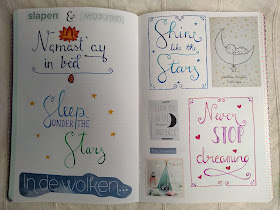 slapen &
Namast'ay
in bed
Sleep
UNDER THE
Stars
In de wolken...
Shine
like the
Stars
Never
STOP
dreaming